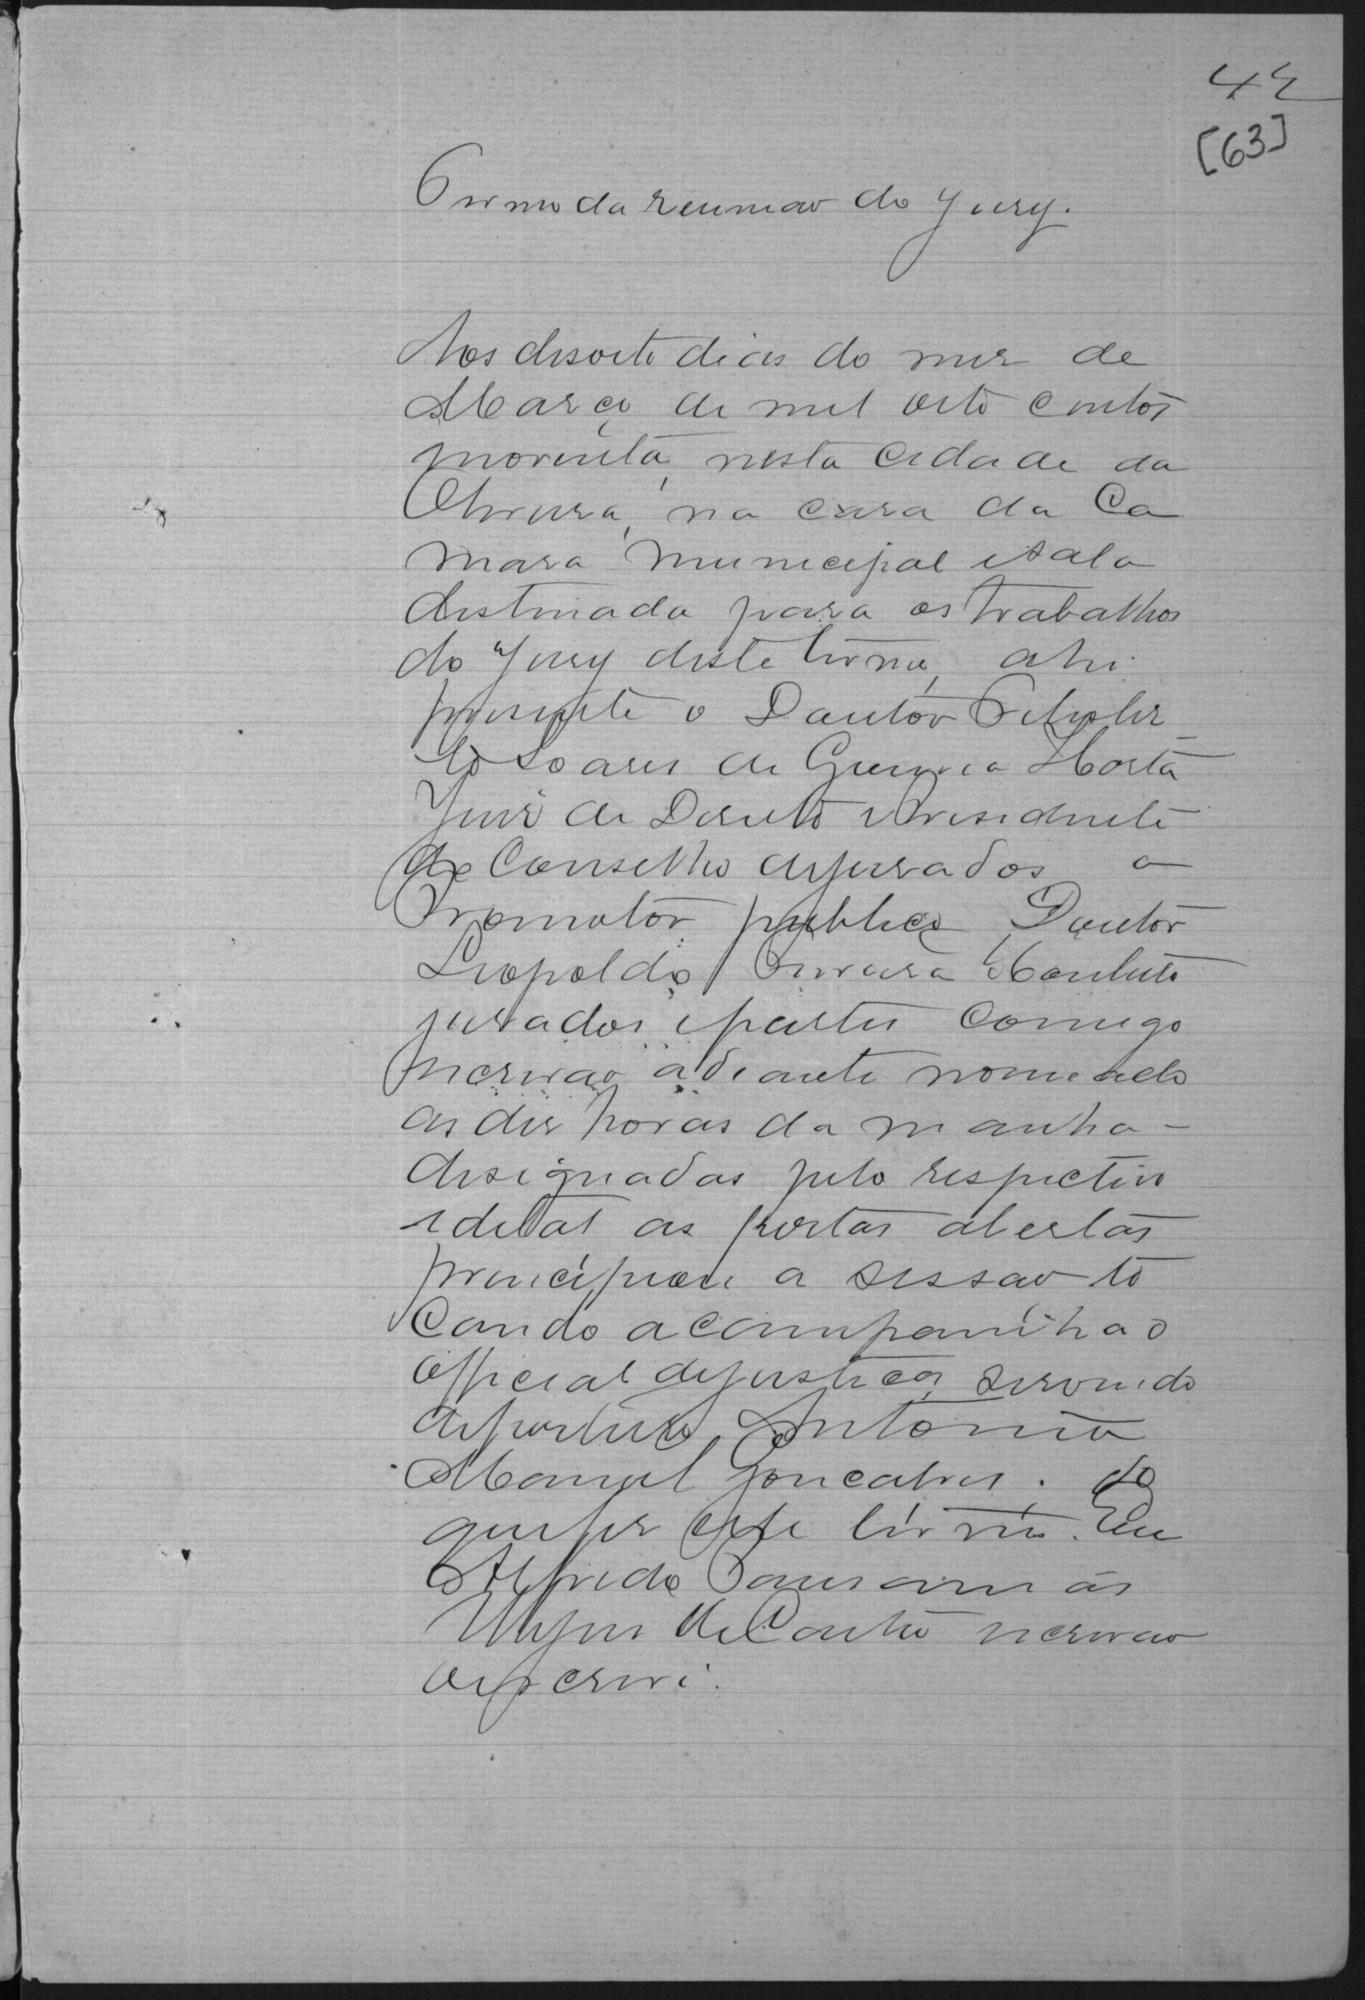 42
[63]
Termo da reunião do Jury.
Aos desoito dias do mez de
Março de mil oito centos
noventa, nesta cidade da
Oliveira, na casa da Ca
mara Municipal e sala
destinada para os trabalhos
do Jury deste termo, ahi
presente o Doutor
Soares de Gouvea Horta
Juiz de Direito e Presidente
do Conselho de jurados o
Promotor publico Doutor
Leopoldo Ferreira Monteiro
jurados e partes comigo
escrivão adiante nomeado
as dez horas da manhã
designadas pelo respectivo
edital as portas abertas
principiou a sessão to
cando a companhia o
official de justiça servindo
de porteiro Antonio
Manoel Gonçalves. do
que fiz este termo. Eu
Alfredo
de Castro escrivão
o escrevi.